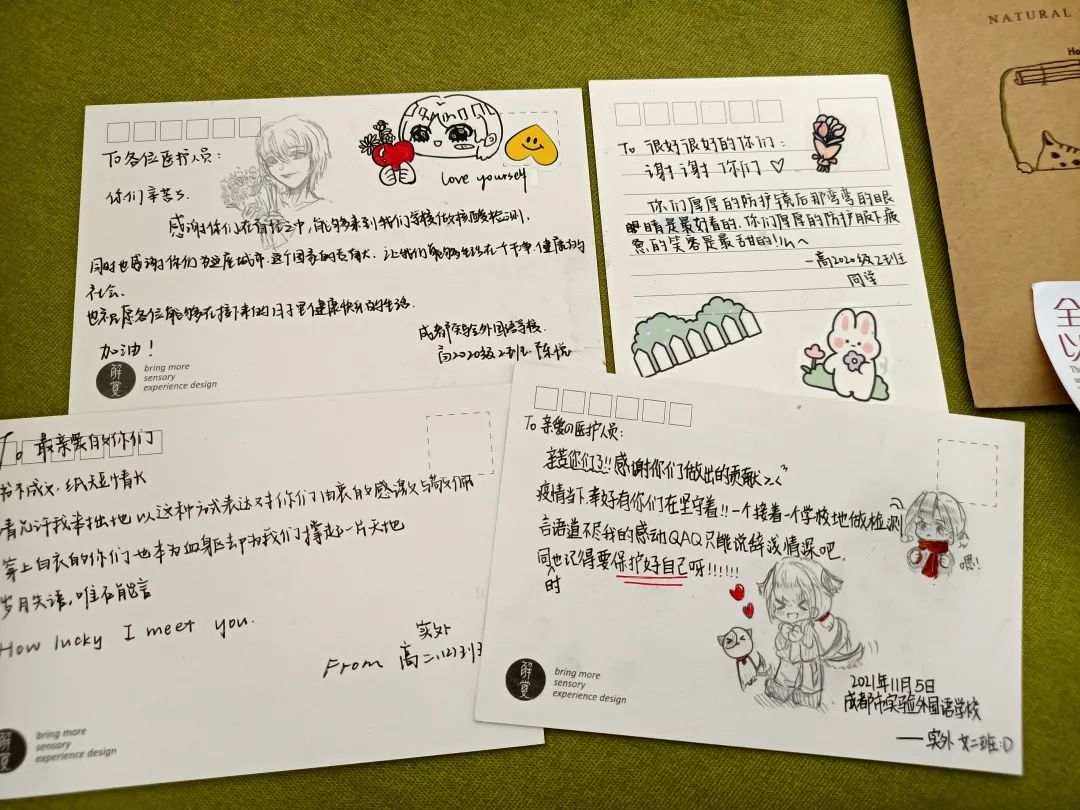 To 各位医护人员：
你们辛苦了.
感谢你们在百忙之中，能够来到我们学校做核酸检测.
同时也感谢你们为这座城市、这个国家的贡献，让我们能够生活在一个干净、健康的
社会.
也衷愿各位能够在接下来的日子里健康快乐的生活.
加油！
love yourself
成都实验外国语学校.
高2020级2班 陈悦
解赏
bring more
sensory
experience design
To 很好很好的你们：
谢谢你们♡
你们厚厚的防护镜后那弯弯的眼
睛是最好看的，你们厚厚的防护服下疲
惫的笑容是最甜的!!
—高2020级2班
同学
To 最亲爱的你们
书不成文，纸短情长
请允许我笨拙地以这种方式表达对你们由衷的感激与敬佩
穿上白衣的你们也本为血躯却为我们撑起一片天地
岁月失语，唯石能言
How lucky I meet you.
实外
From 高二(2)班
解赏
bring more
sensory
experience design
To 亲爱の医护人员：
辛苦你们了!!感谢你们做出的贡献><
疫情当下，幸好有你们在坚守着!!一个接着一个学校地做检测
言语道不尽我的感动QAQ只能说辞浅情深吧.
同时也记得要保护好自己呀!!!!!!
嗯!
2021年11月5日
成都市实验外国语学校
——实外 女二班:D
解赏
bring more
sensory
experience design
NATURAL
Ho
全
以
Th